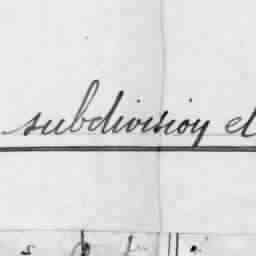 subdivision el